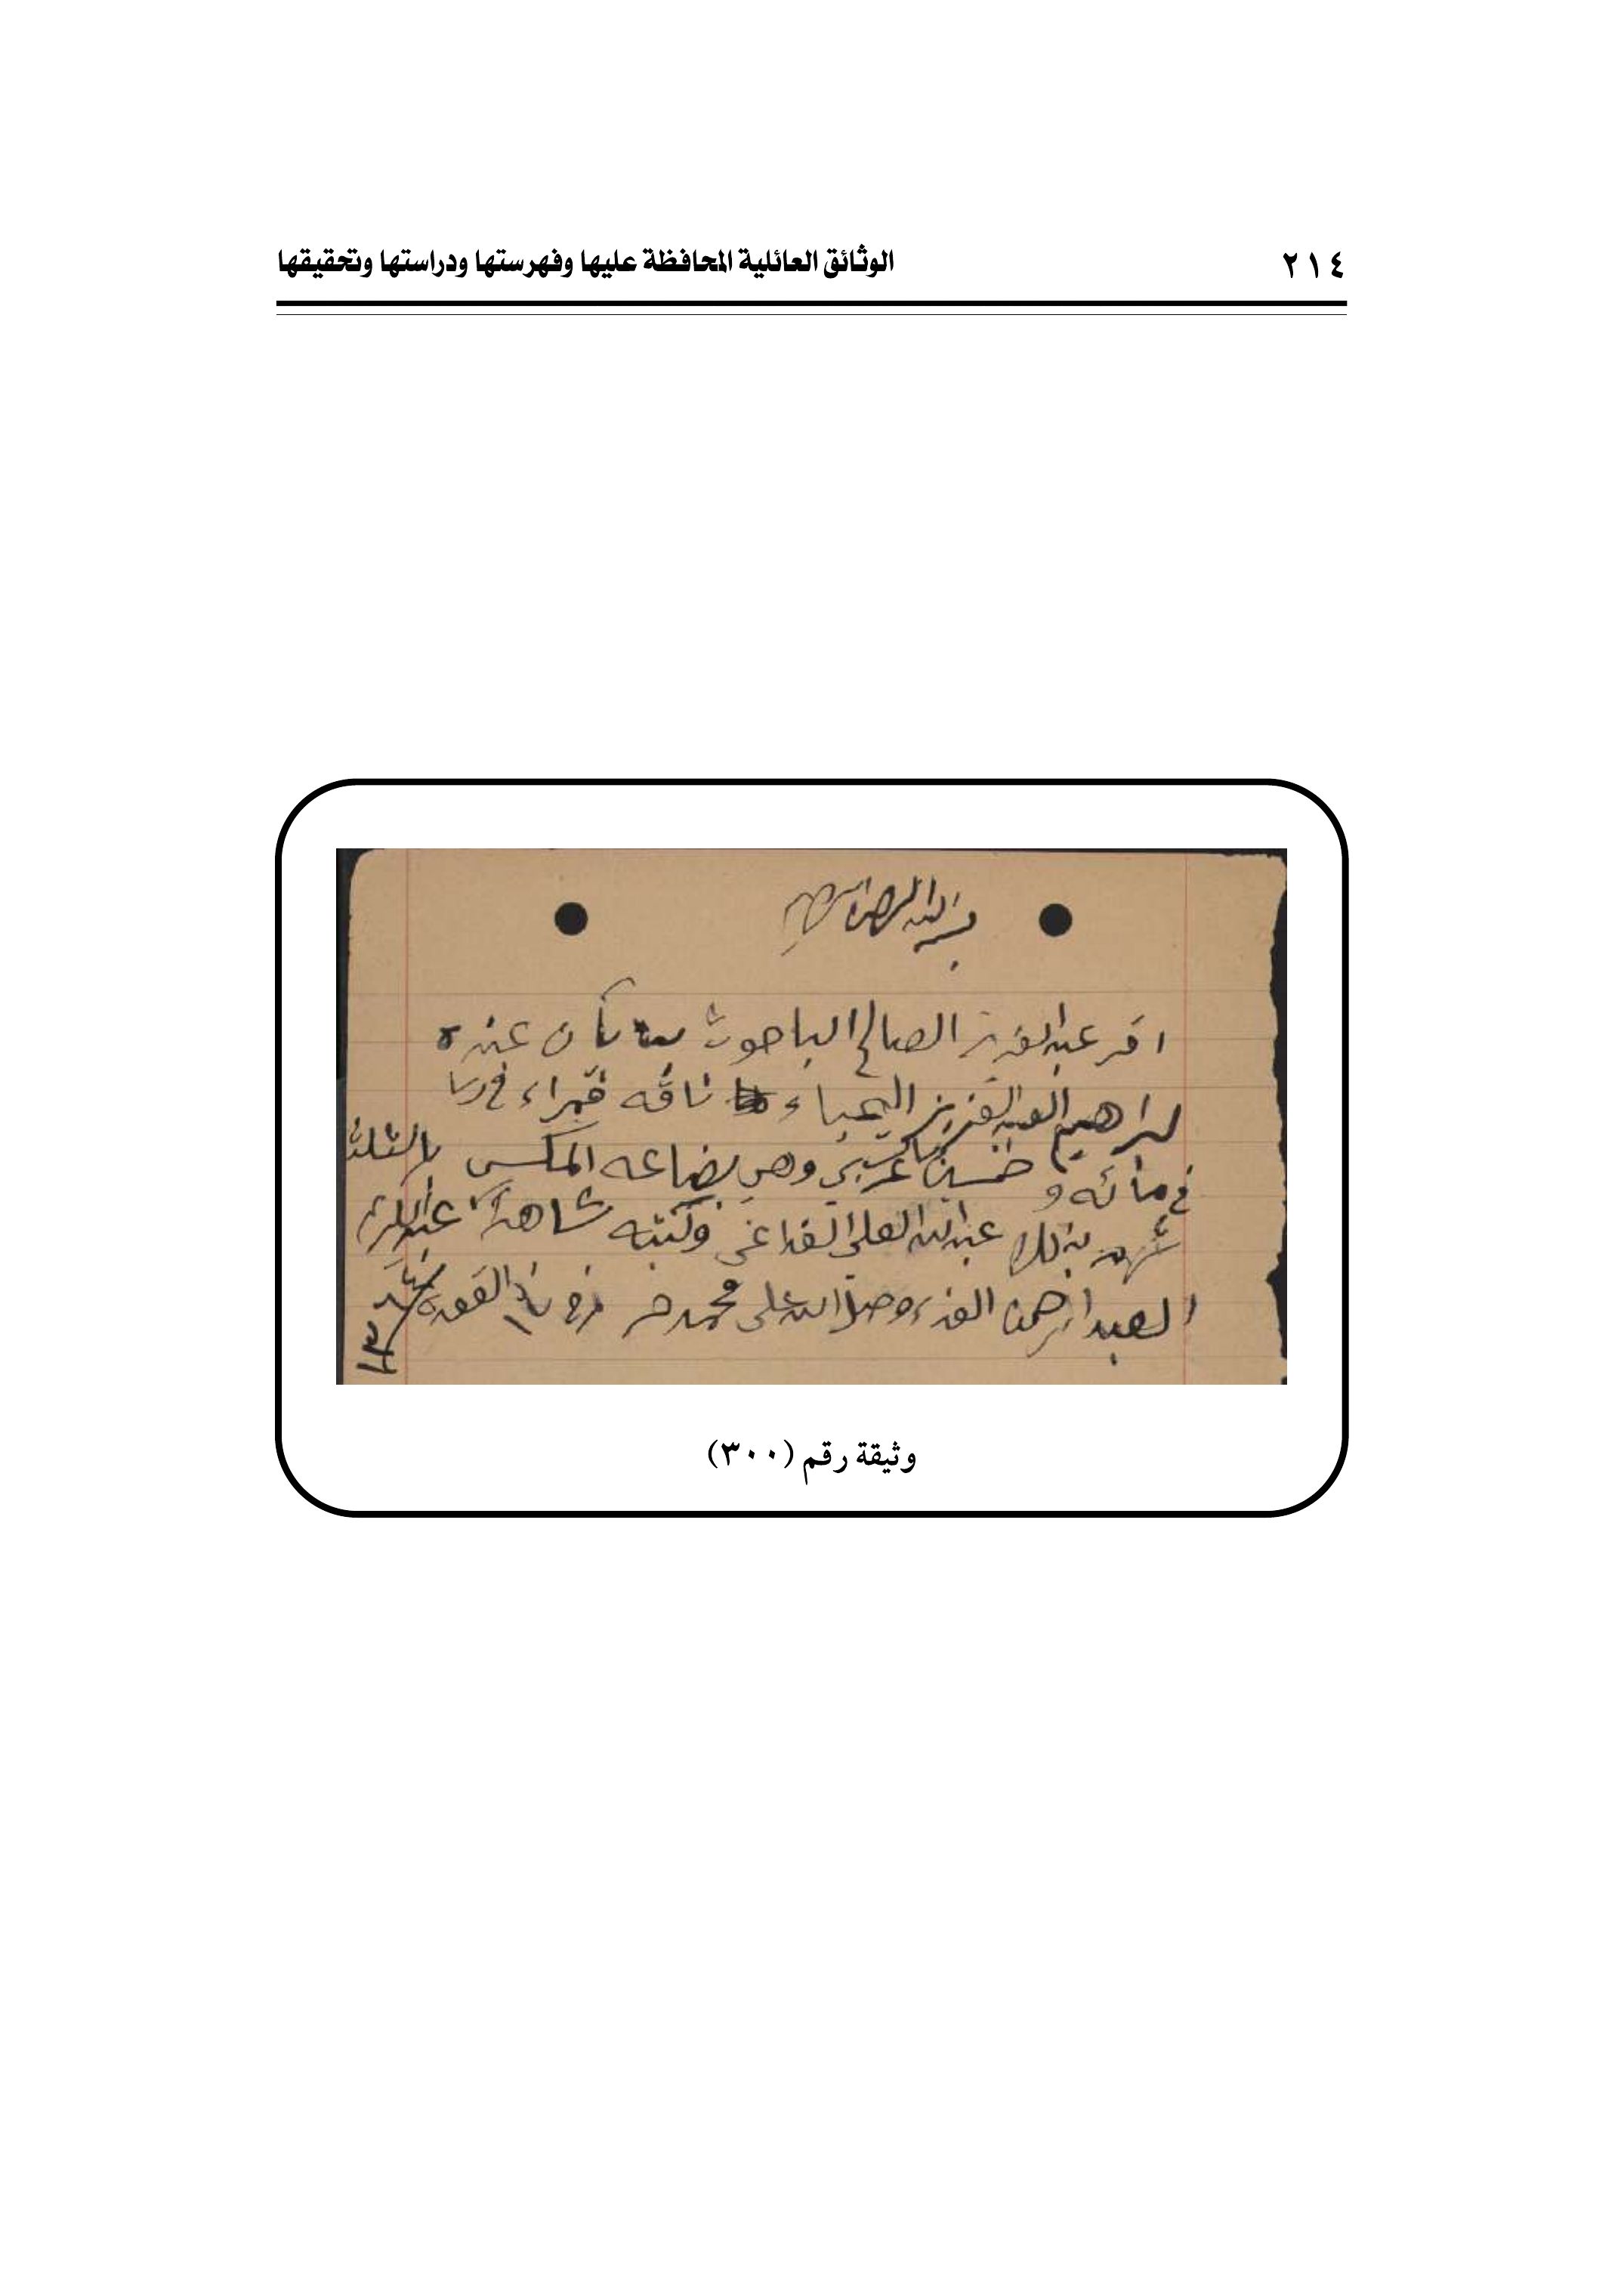 ٢١٤
الوثائق العائلية المحافظة عليها وفهرستها ودراستها وتحقيقها
بسم الله الرحمن الرحيم
اقر عبدالعزيز الصالح الباحوث بان عنده
لبراهيم العبدالعزيز اليحياء ناقه قمراء
في مائه وخمسين عربي وهي بضاعه المكسب بالثلث
شهد بذلك عبدالله العلي القداغي وكتبه شاهدا عبدالله
العبدالرحمن وصلى الله على محمد القعده
وثيقة رقم (٣٠٠)